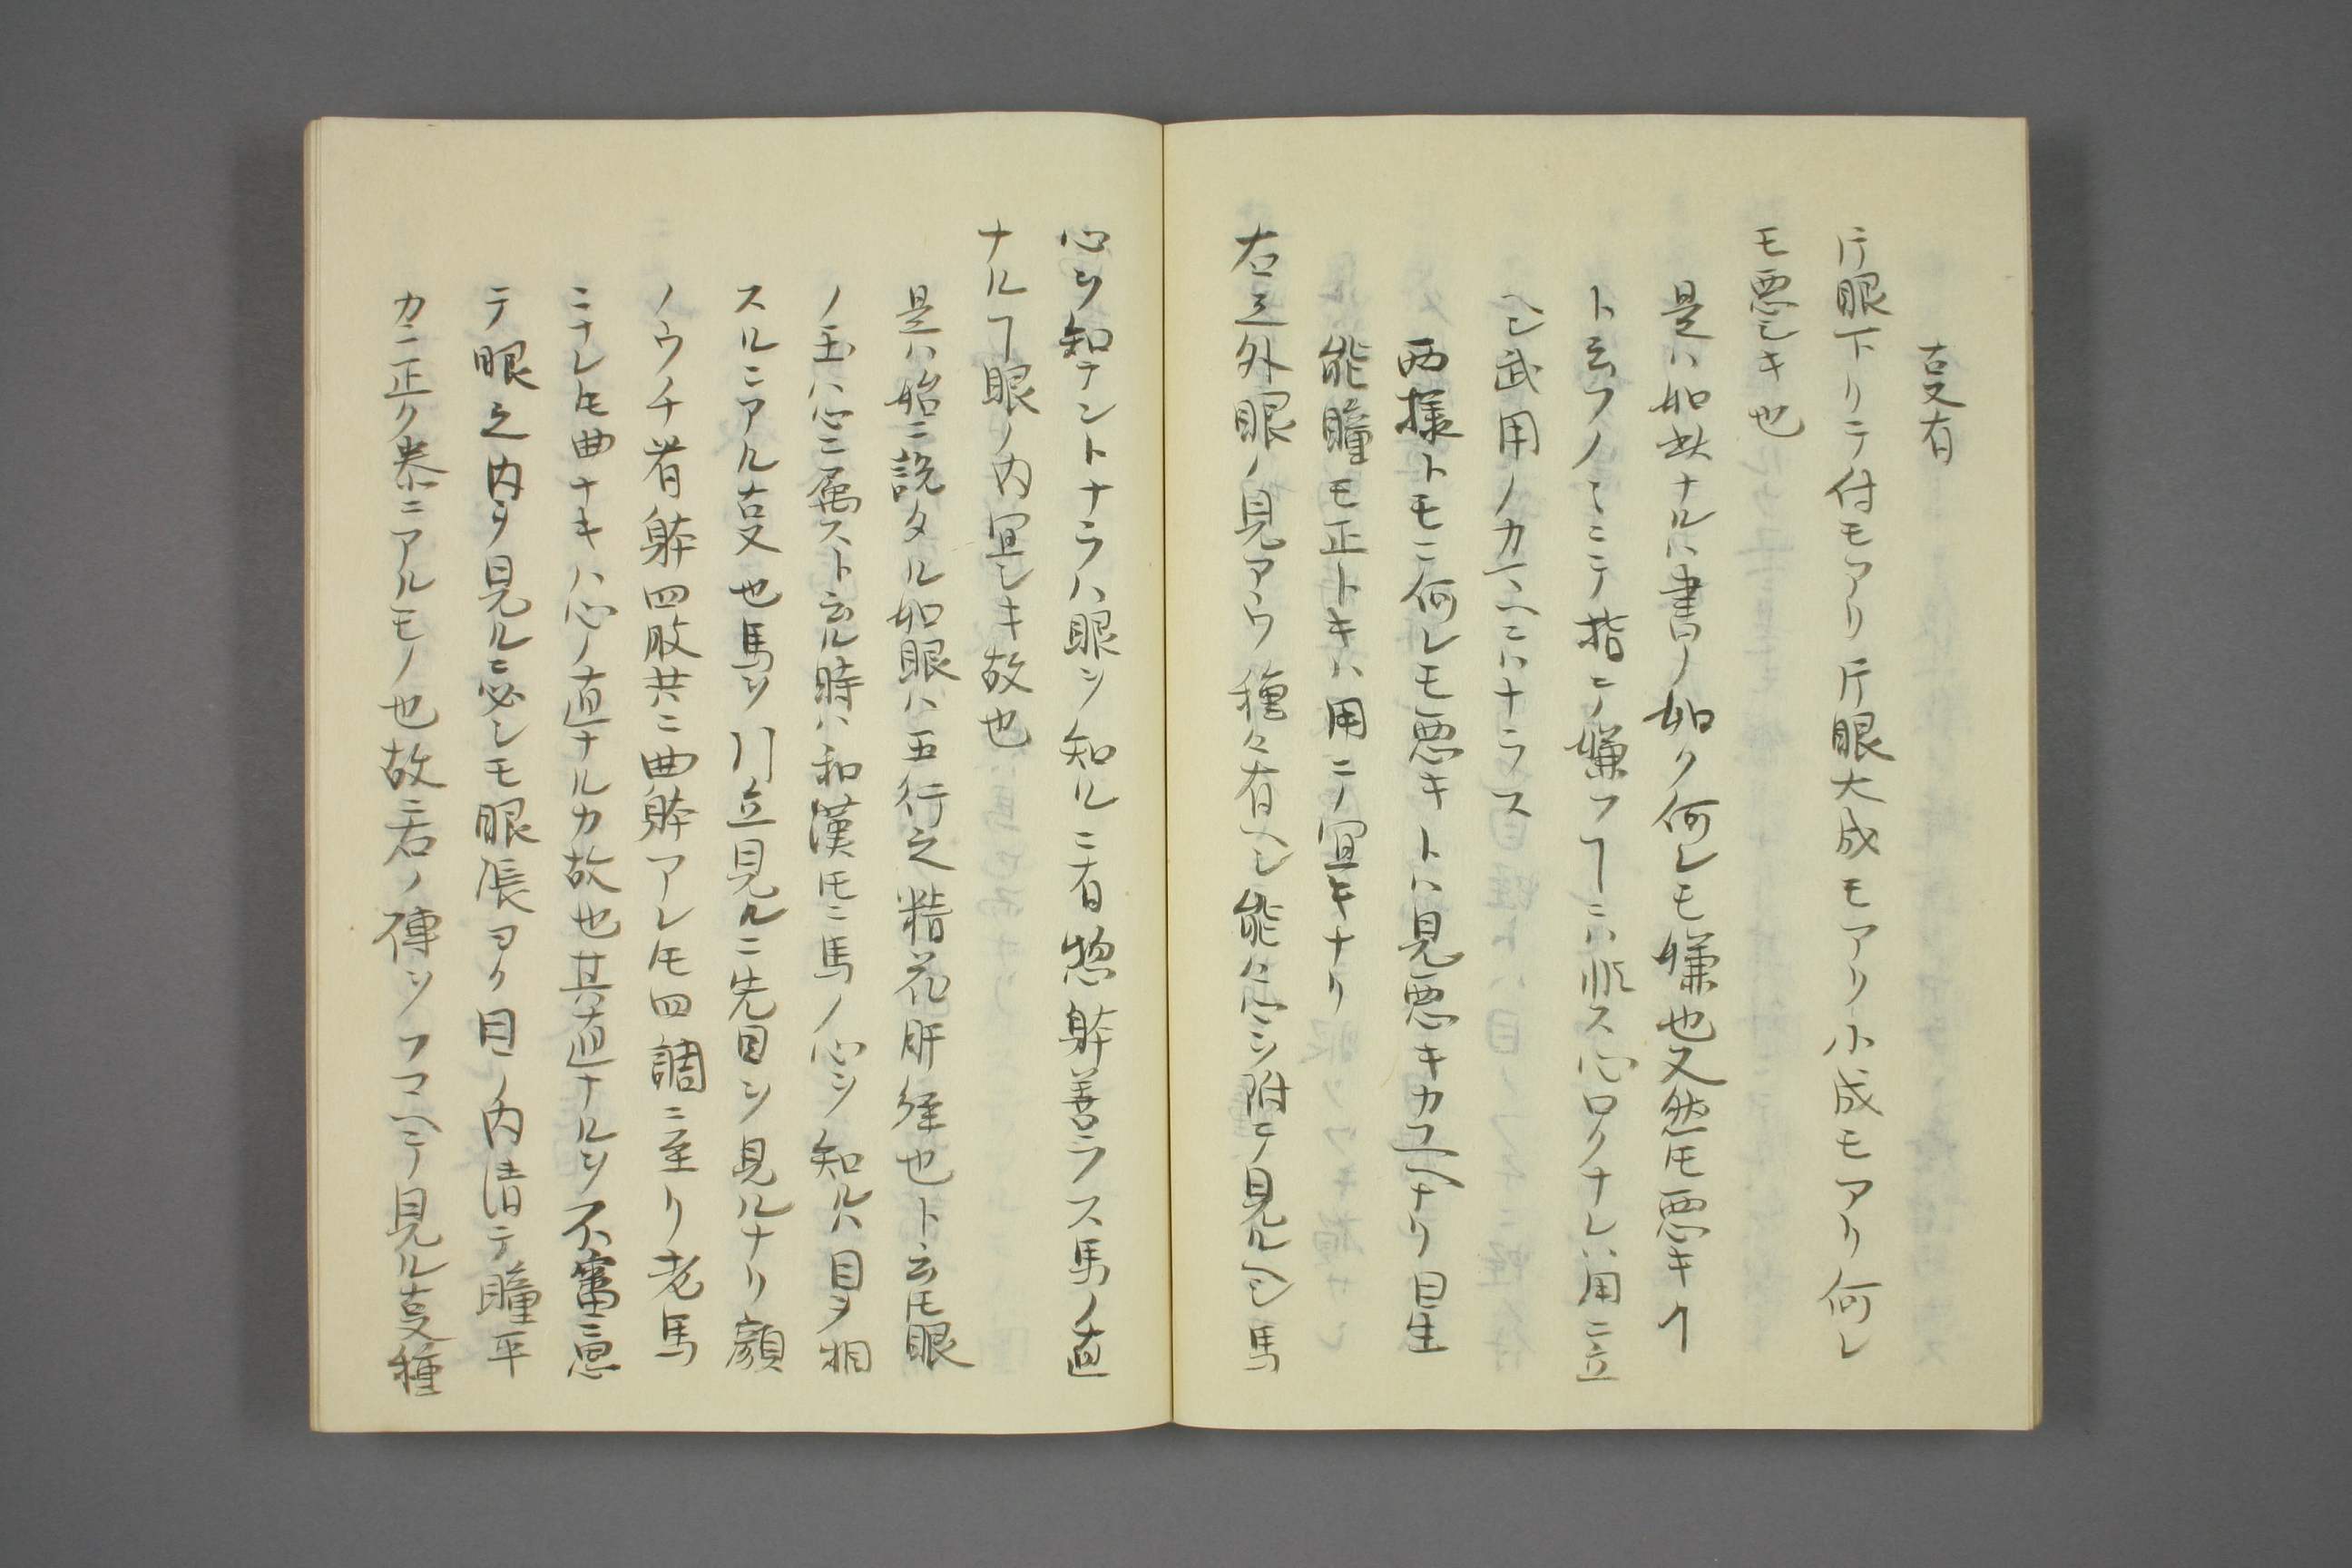 叓有
片眼下リテ付モアリ片眼大成モアリ小成モアリ何レ
モ悪シキ也
是ハ如此ナルハ書ノ如ク何レモ嫌也又然𪜈悪キヿ
ト云フノミニテ指テ嫌フヿニハ非ス心ロクナレハ用ニ立
ヘシ武用ノカマヘニハナラス
両様トモニ何レモ悪キトハ見悪キカユヘナリ目生
能瞳モ正トキハ用ニノ宜キナリ
右之外眼ノ見アウ種々有ヘシ能々心ヲ附テ見ルヘシ馬
心ヲ知ナントナラハ眼ヲ知ルニ有惣躰善ラス馬ノ直
ナルヿ眼ノ内宜シキ故也
是ハ始ニ説タル如眼ハ五行之精花肝経也ト云𪜈眼
ノ玉ハ心ニ属スト云ル時ハ和漢𪜈ニ馬ノ心ヲ知ルハ目ヲ相
スルニアル叓也馬ヲ引立見ルニ先目ヲ見ルナリ顔
ノウチ首躰四肢共ニ曲躰アレ𪜈四調ニ至リ老馬
ニナレ𪜈曲ナキハ心ノ直ナルカ故也其直ナルヲ不審ニ思
テ眼之内ヲ見ルニ必シモ眼張ヨク目ノ内清テ瞳平
カニ正ク泰ニアルモノ也故ニ右ノ傳ヲフマヘテ見ル叓種